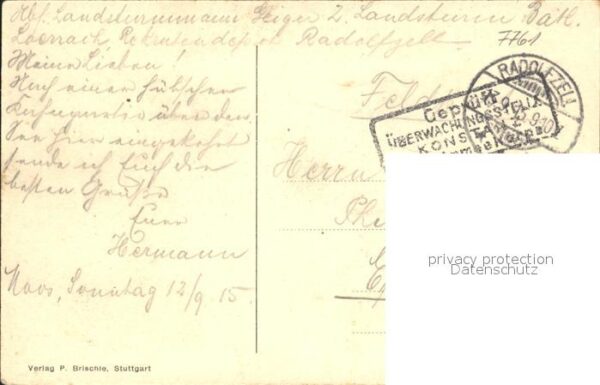 Abs. Landsturmmann Geiger 2. Landsturm Batl.
Loerrach, Rekrutendepot Radolfzell
7761
Meine Lieben!
Nach einer hübschen
über den
See hier eingekehrt
sende ich Euch die
besten Grüße
Euer
Hermann
Moos, Sonntag 12/9 15.
RADOLFZELL
Geprüft
ÜBERWACHUNGSSTELLE
KONST
Herrn
privacy protection
Datenschutz
Verlag P. Brischle, Stuttgart